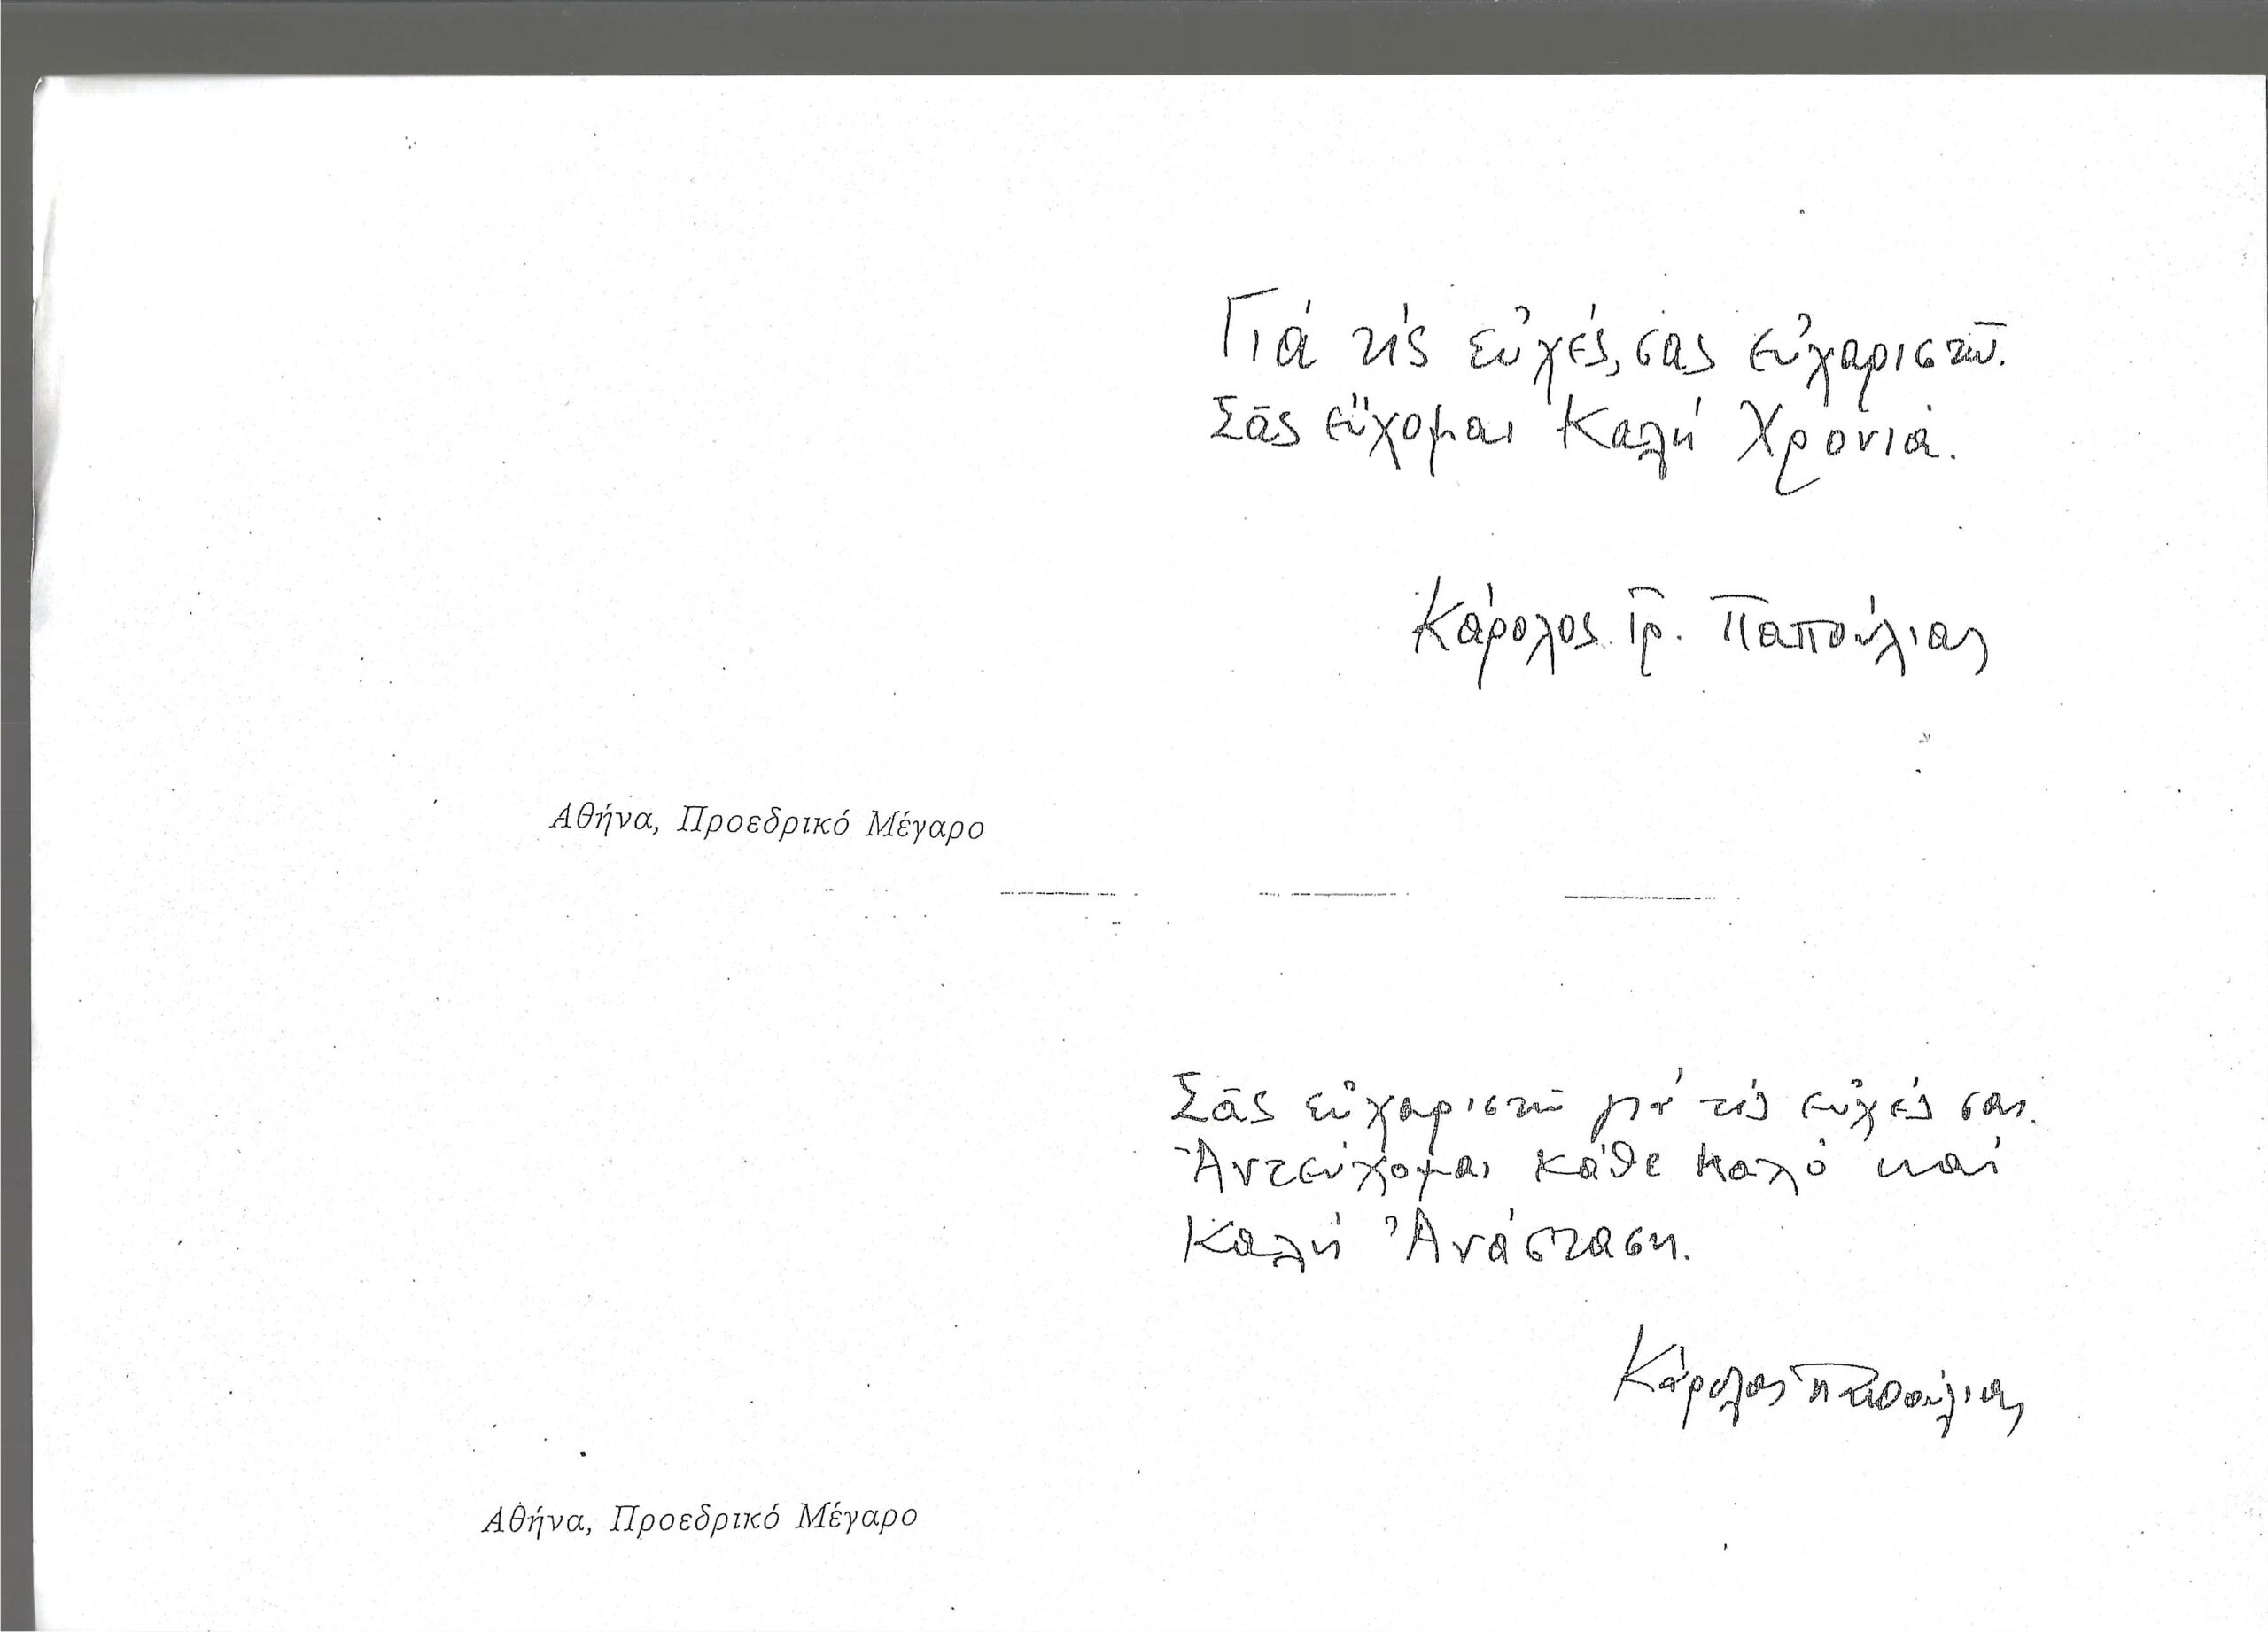 Γιά τίς εὐχές, σας εὐχαριστῶ.
Σᾶς εὔχομαι Καλή Χρονιά.
Κάρολος Γρ. Παπούλιας
Αθήνα, Προεδρικό Μέγαρο
Σᾶς εὐχαριστῶ γιά τίς εὐχές σας.
Ἀντεύχομαι κάθε καλό καί
Καλή Ἀνάσταση.
Κάρολος Παπούλιας
Αθήνα, Προεδρικό Μέγαρο